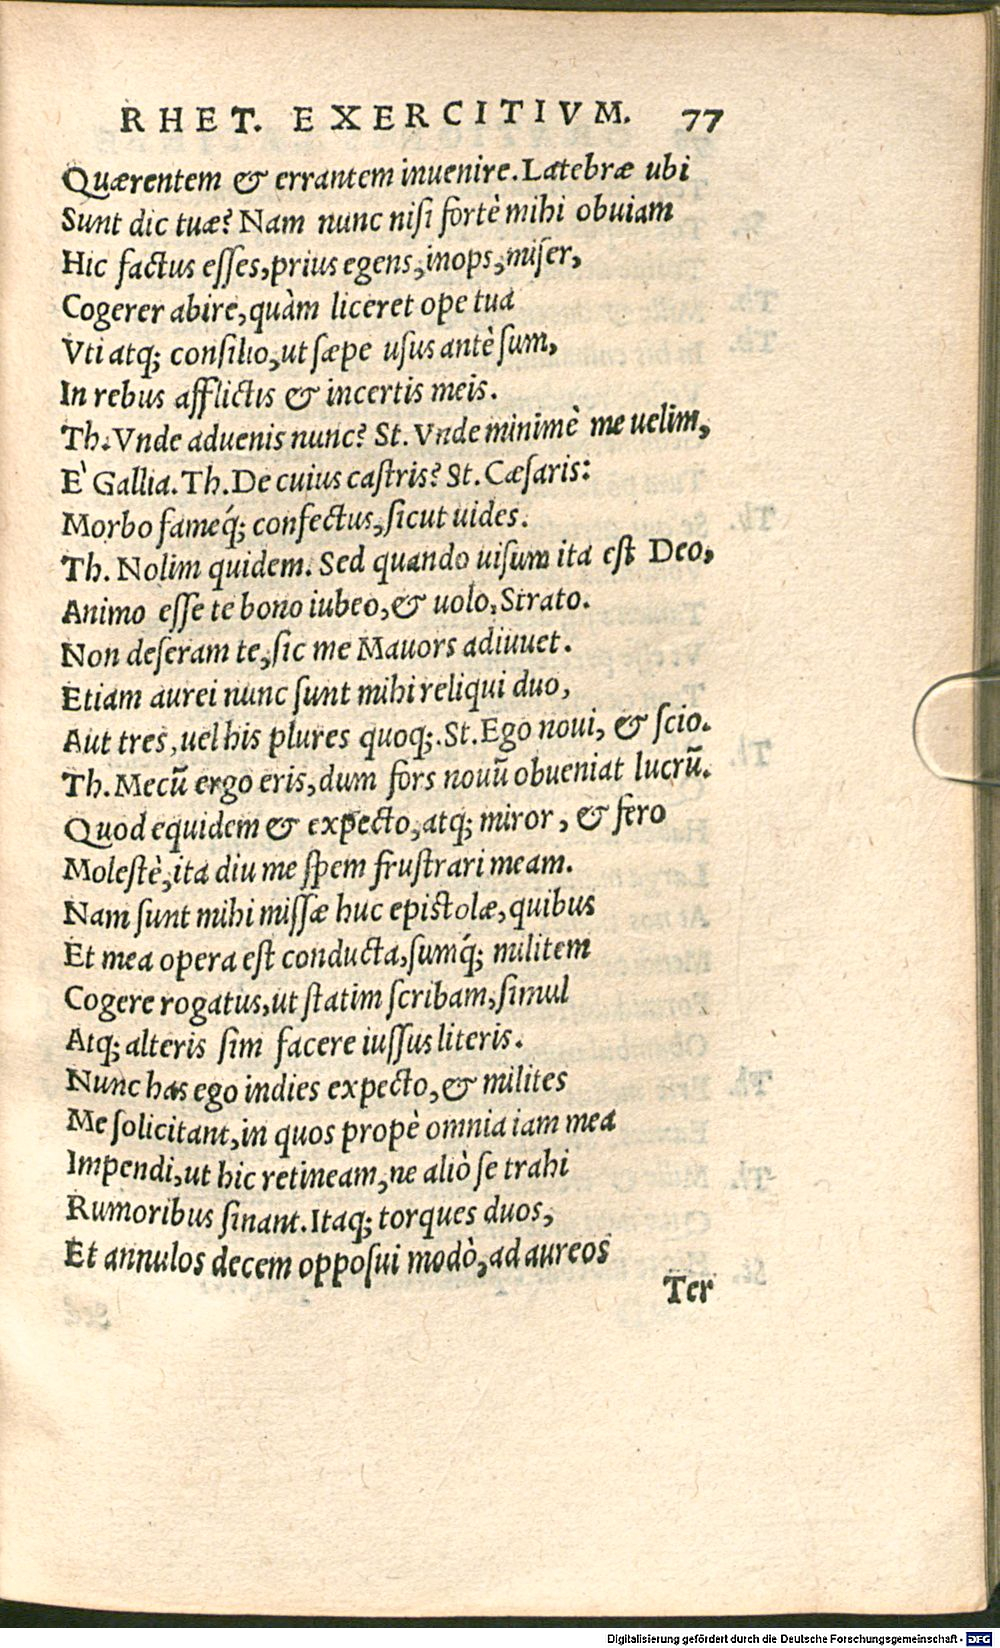 RHET. EXERCITIVM. 77
Quærentem & errantem inuenire. Latebræ ubi
Sunt dic tuæ? Nam nunc niſi fortè mihi obuiam
Hic factus eſſes, prius egens, inops, miſer,
Cogerer abire, quàm liceret ope tua
Vti atq; conſilio, ut ſæpe uſus antè ſum,
In rebus afflictis & incertis meis.
Th. Vnde aduenis nunc? St. Vnde minimè me uelim,
E` Gallia. Th. De cuius caſtris? St. Cæſaris:
Morbo fameq́; confectus, ſicut uides.
Th. Nolim quidem. Sed quando uiſum ita eſt Deo,
Animo eſſe te bono iubeo, & uolo, Strato.
Non deſeram te, ſic me Mauors adiuuet.
Etiam aurei nunc ſunt mihi reliqui duo,
Aut tres, uel his plures quoq;. St. Ego noui, & ſcio.
Th. Mecũ ergo eris, dum fors nouũ obueniat lucrũ.
Quod equidem & expecto, atq; miror, & fero
Moleſtè, ita diu me ſpem fruſtrari meam.
Nam ſunt mihi miſſæ huc epiſtolæ, quibus
Et mea opera eſt conducta, ſumq́; militem
Cogere rogatus, ut ſtatim ſcribam, ſimul
Atq; alteris ſim facere iuſſus literis.
Nunc has ego indies expecto, & milites
Me ſolicitant, in quos propè omnia iam mea
Impendi, ut hic retineam, ne aliò ſe trahi
Rumoribus ſinant. Itaq; torques duos,
Et annulos decem oppoſui modò, ad aureos
Ter
Digitalisierung gefördert durch die Deutsche Forschungsgemeinschaft - DFG